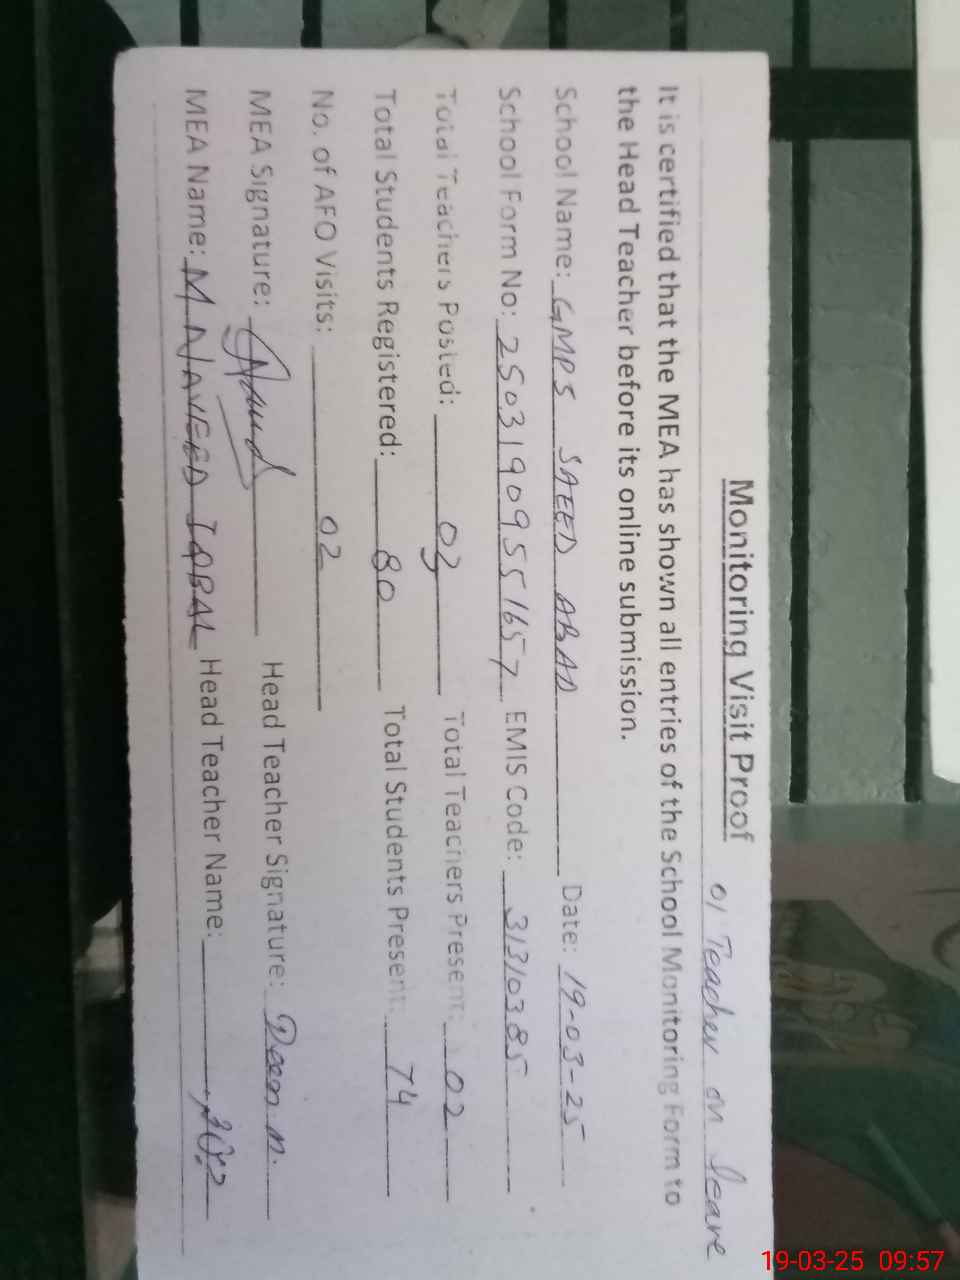 Monitoring Visit Proof
01 Teacher on leave
It is certified that the MEA has shown all entries of the School Monitoring Form to
the Head Teacher before its online submission.
School Name: GMPS SAEED ABAD Date: 19-03-25
School Form No: 25031909551657 EMIS Code: 31310385
Total Teachers Posted: 03 Total Teachers Present: 02
Total Students Registered: 80 Total Students Present: 74
No. of AFO Visits: 02
MEA Signature: Head Teacher Signature:
MEA Name: M NAVEED IQBAL Head Teacher Name:
19-03-25 09:57